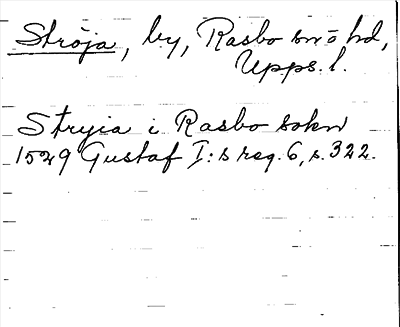 Ströja, by, Rasbo sn o hd,
Upps. l.
Stryia i Rasbo sokn
1529 Gustaf I:s reg. 6, s. 322.